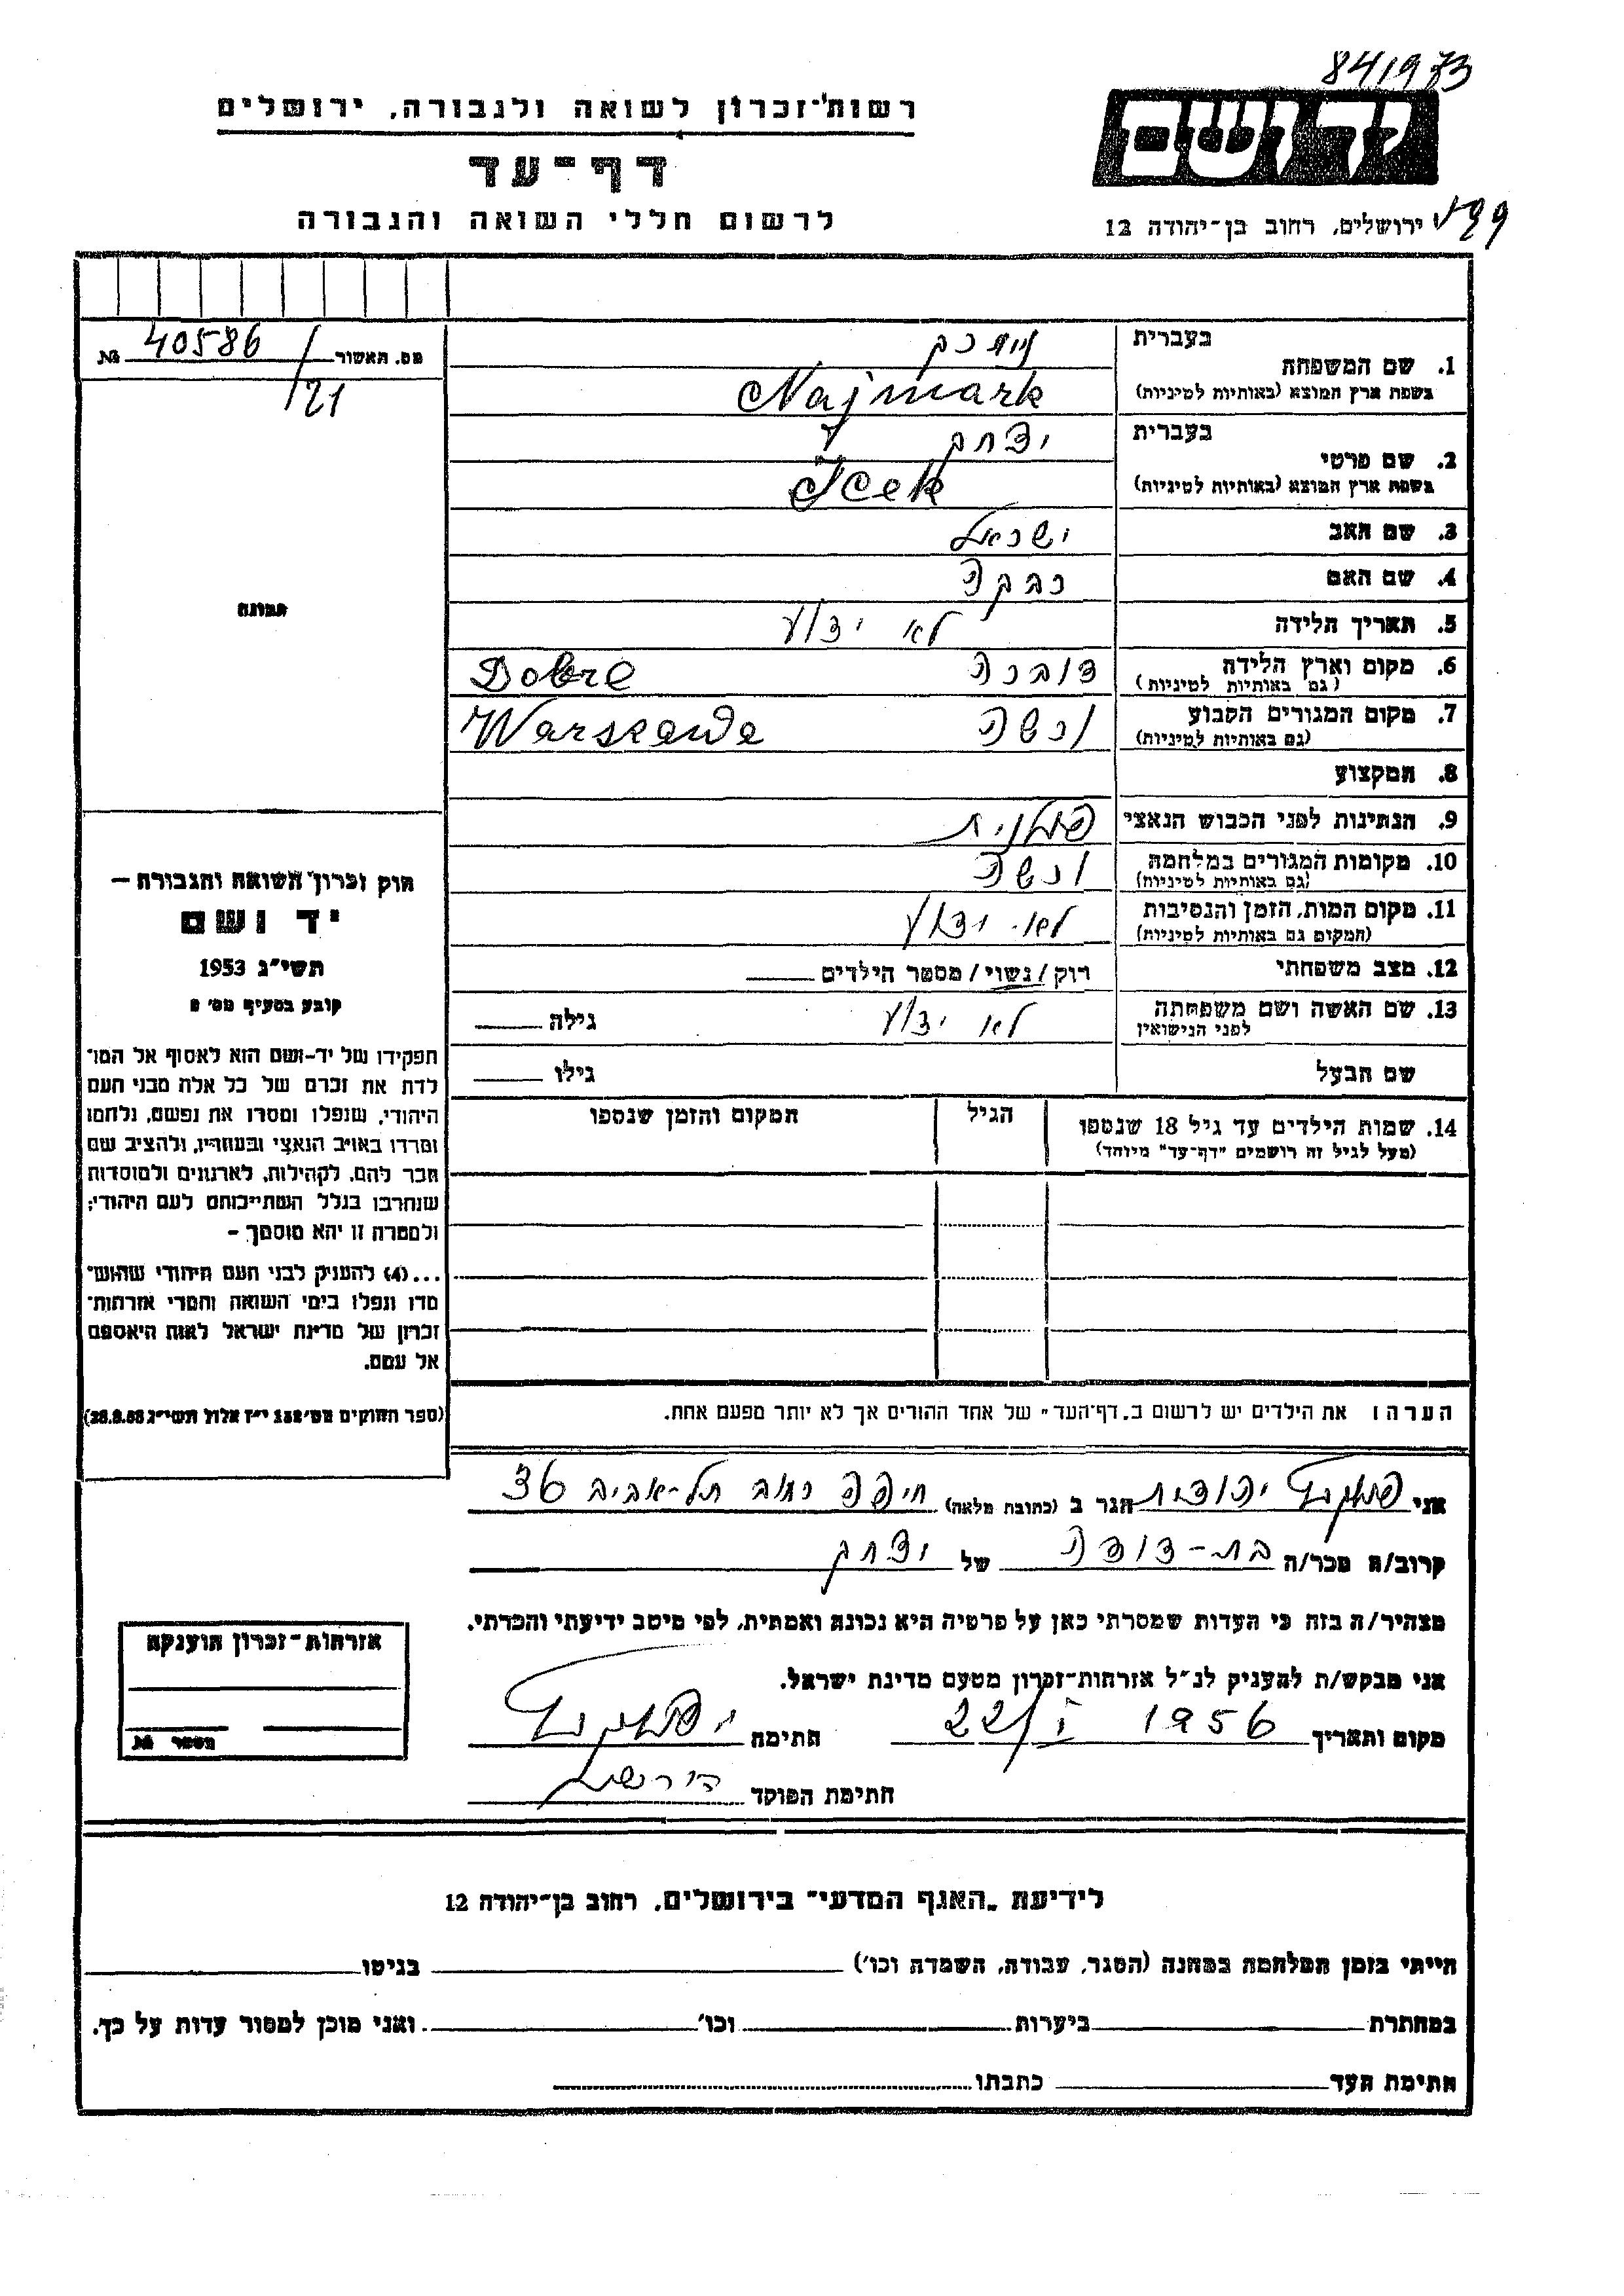 841973
יד ושם
רשות־זכרון לשואה ולגבורה, ירושלים
דף־עד
לרשום חללי השואה והגבורה
ירושלים, רחוב בן־יהודה 12
מס. האשור 40586 №
/21
תמונה
חוק זכרון השואה והגבורה —
יד ושם
תשי״ג 1953
קובע בסעיף מס׳ 2
תפקידו של יד־ושם הוא לאסוף אל המו־
לדת את זכרם של כל אלה מבני העם
היהודי, שנפלו ומסרו את נפשם, נלחמו
ומרדו באויב הנאצי ובעוזריו, ולהציב שם
וזכר להם, לקהילות, לארגונים ולמוסדות
שנחרבו בגלל השתייכותם לעם היהודי;
ולמטרה זו יהא מוסמך —
...(4) להעניק לבני העם היהודי שהוש־
מדו ונפלו בימי השואה והמרי אזרחות־
זכרון של מדינת ישראל לאות היאספם
אל עמם.
(ספר החוקים מס׳ 132 י״ז אלול תשי״ג 28.8.53)
1. שם המשפחה
בעברית ניימרק
בשפת ארץ המוצא (באותיות לטיניות) Najmark
2. שם פרטי
בעברית יצחק
בשפת ארץ המוצא (באותיות לטיניות) Icek
3. שם האב ישראל
4. שם האם רבקה
5. תאריך הלידה לא ידוע
6. מקום וארץ הלידה דוברה Dobre
(גם באותיות לטיניות)
7. מקום המגורים הקבוע ורשה Warszawa
(גם באותיות לטיניות)
8. המקצוע
9. הנתינות לפני הכבוש הנאצי פולנית
10. מקומות המגורים במלחמה ורשה
(גם באותיות לטיניות)
11. מקום המות, הזמן והנסיבות לא ידוע
(המקום גם באותיות לטיניות)
12. מצב משפחתי רוק/נשוי/מספר הילדים
13. שם האשה ושם משפחתה לא ידוע גילה
לפני הנישואין
שם הבעל גילו
14. שמות הילדים עד גיל 18 שנספו הגיל המקום והזמן שנספו
(מעל לגיל זה רושמים "דף־עד" מיוחד)
הערה: את הילדים יש לרשום ב„דף־העד״ של אחד ההורים אך לא יותר מפעם אחת.
אני יהודית הגר ב (כתובת מלאה) חיפה רחוב תל-אביב 36
קרוב/ה מכר/ה בת-דודה של יצחק
מצהיר/ה בזה כי העדות שמסרתי כאן על פרטיה היא נכונה ואמתית, לפי מיטב ידיעתי והכרתי.
אני מבקש/ת להעניק לנ״ל אזרחות־זכרון מטעם מדינת ישראל.
מקום ותאריך 22/I 1956 חתימה
חתימת הפוקד
אזרחות־זכרון הוענקה
מספר №
לידיעת „האגף המדעי״ בירושלים, רחוב בן־יהודה 12
הייתי בזמן המלחמה במחנה (הסגר, עבודה, השמדה וכו׳) בגיטו
במחתרת ביערות וכו׳ ואני מוכן למסור עדות על כך.
חתימת העד כתבתו